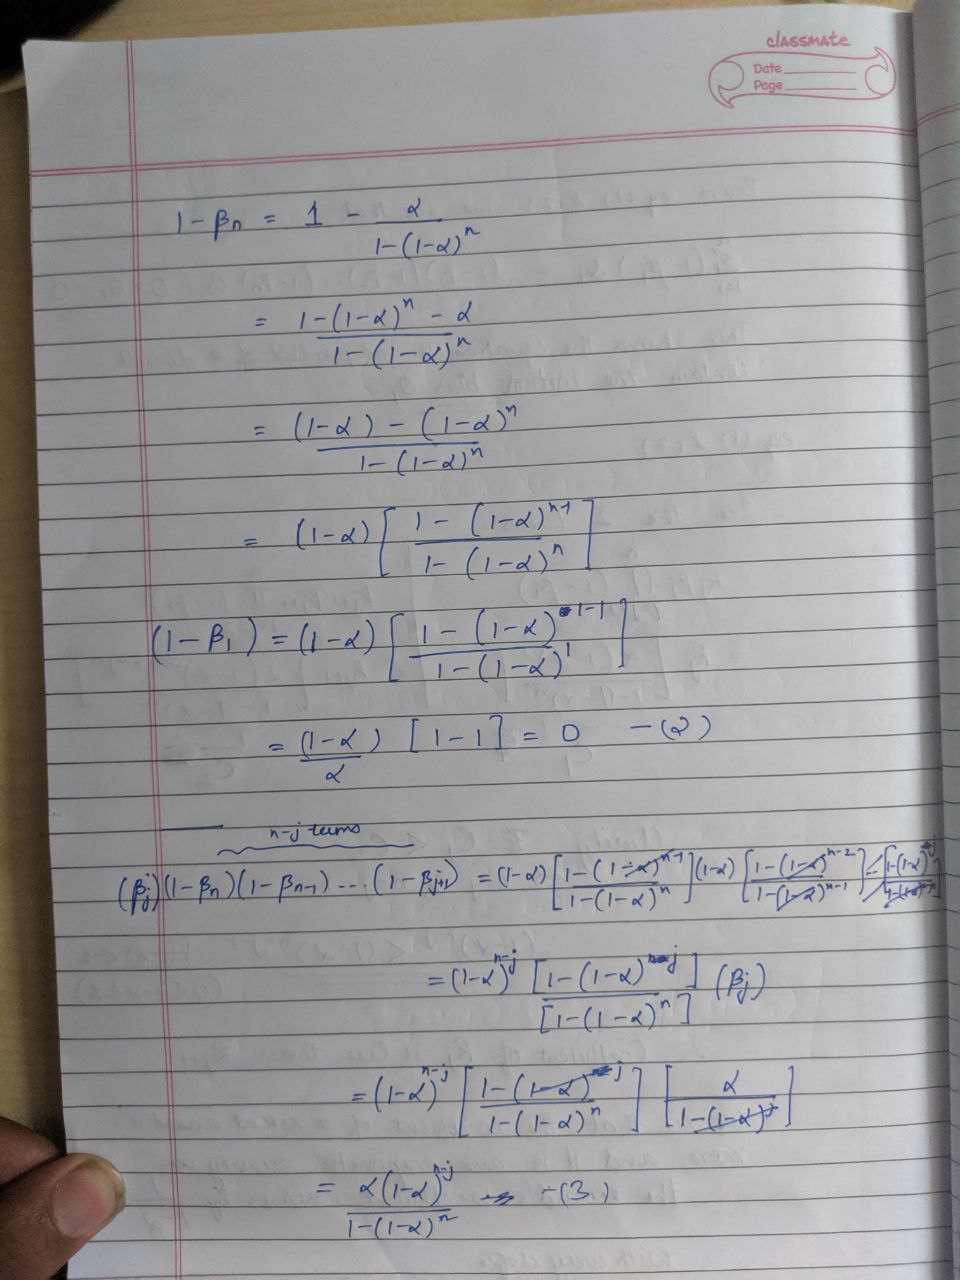 classmate
Date
Page
1 - βn = 1 - α / (1-(1-α)^n)
= (1-(1-α)^n - α) / (1-(1-α)^n)
= ((1-α) - (1-α)^n) / (1-(1-α)^n)
= (1-α) [ (1-(1-α)^(n-1)) / (1-(1-α)^n) ]
(1-β1) = (1-α) [ (1-(1-α)^(1-1)) / (1-(1-α)^1) ]
= (1-α)/α [1-1] = 0 -(2)
n-j terms
(βj)(1-βn)(1-βn-1) ... (1-βj+1) = (1-α) [ (1-(1-α)^(n-1)) / (1-(1-α)^n) ] (1-α) [ (1-(1-α)^(n-2)) / (1-(1-α)^(n-1)) ] ... [ (1-(1-α)^j)
= (1-α)^(n-j) [1-(1-α)^j] / [1-(1-α)^n] (βj)
= (1-α)^(n-j) [ (1-(1-α)^j) / (1-(1-α)^n) ] [ α / (1-(1-α)^j) ]
= α(1-α)^(n-j) / (1-(1-α)^n) -(3)